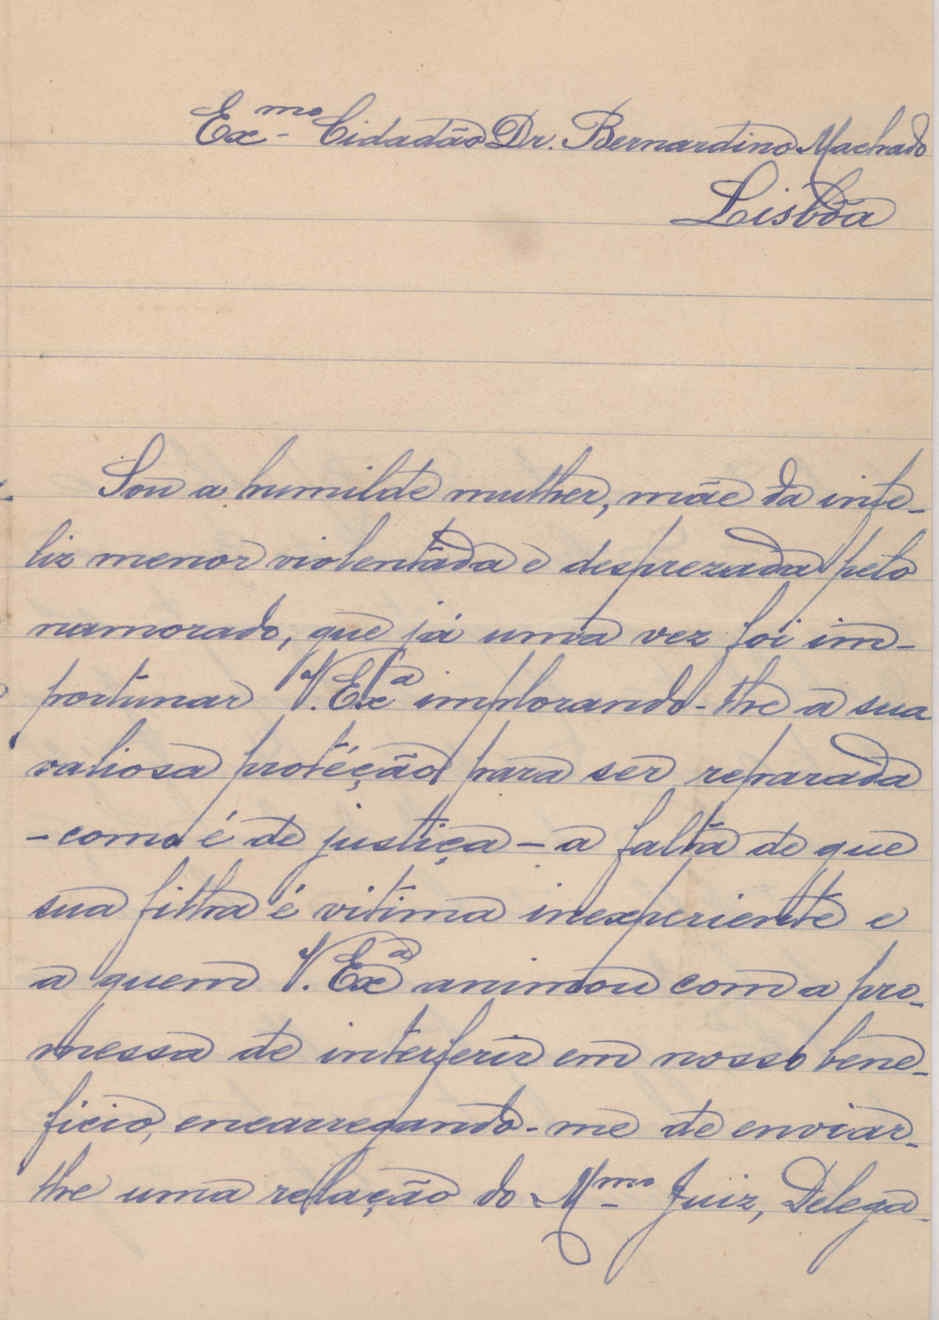 Ex.mo Cidadão Dr. Bernardino Machado
Lisbôa
Sou a humilde mulher, mãe da infe-
liz menor violentáda e desprezada pelo
namorado, que já uma vez foi im-
portunar V. Exª implorando-lhe a sua
valiosa protéção para ser reparada
-como é de justiça - a falta de que
sua filha é vitima inexperiente e
a quem V. Exª animou com a pro-
messa de interferir em nosso bene-
ficio, encarregando-me de enviar-
lhe uma relação do M.mo Juiz, Delega-